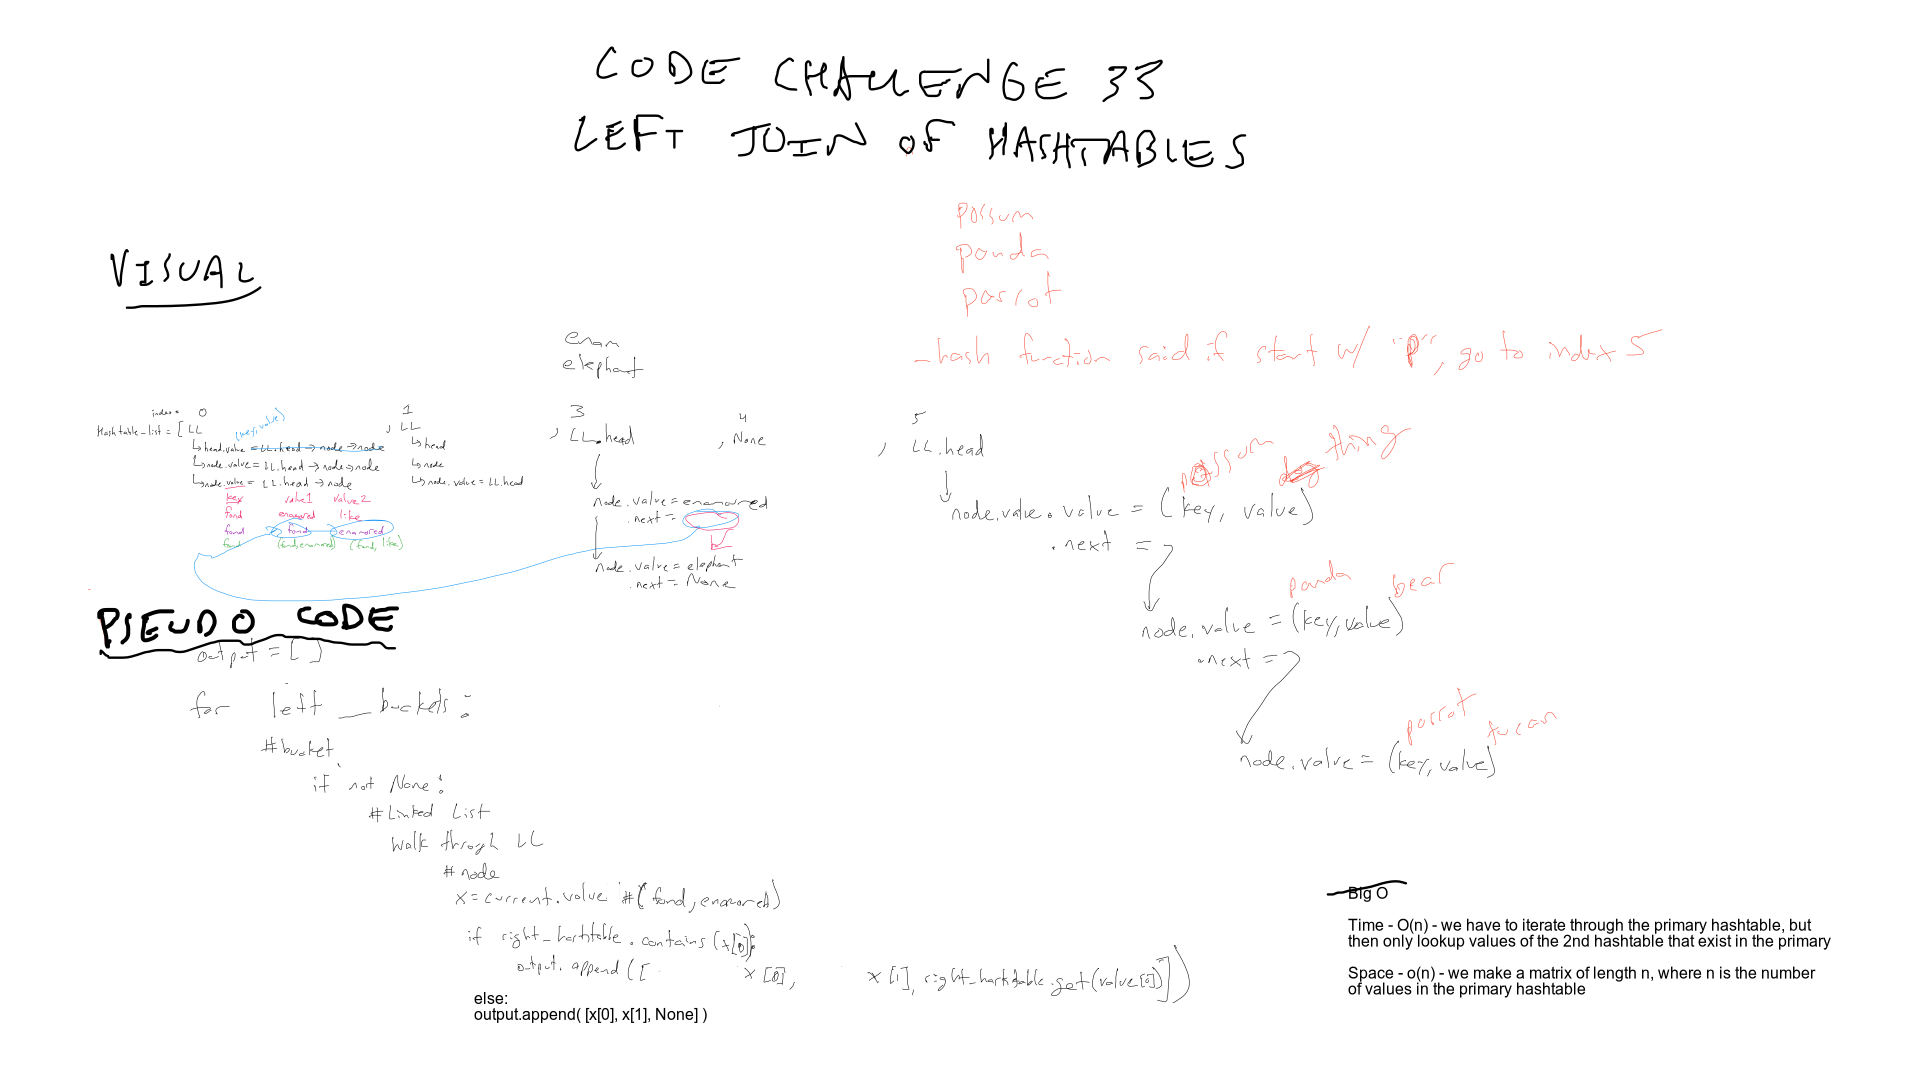 CODE CHALLENGE 33
LEFT JOIN OF HASHTABLES
possum
panda
parrot
- hash function said if start w/ "P", go to index 5
VISUAL
enam
elephant
index: 0 1 3 4 5
Hashtable_list = [ LL , LL , LL.head , None , LL.head
(key, value)
↳ head.value = LL.head → node → node
↳ node.value = LL.head → node → node
↳ node.value = LL.head → node
↳ head
↳ node
↳ node.value = LL.head
key value1 value2
fond enamored like
fond fond enamored
fond (fond, enamored) (fond, like)
node.value = enamoured
.next =
node.value = elephant
.next = None
possum thing
node.value.value = (key, value)
.next =
panda bear
node.value = (key, value)
.next =
parrot tucan
node.value = (key, value)
PSEUDO CODE
output = [ ]
for left __ buckets:
#bucket
if not None:
#Linked List
walk through LL
#node
x = current.value #(fond, enamored)
if right_hashtable.contains(x[0]):
output.append([ x[0], x[1], right_hashtable.get(value[0])])
else:
output.append( [x[0], x[1], None] )
Big O
Time - O(n) - we have to iterate through the primary hashtable, but
then only lookup values of the 2nd hashtable that exist in the primary
Space - o(n) - we make a matrix of length n, where n is the number
of values in the primary hashtable